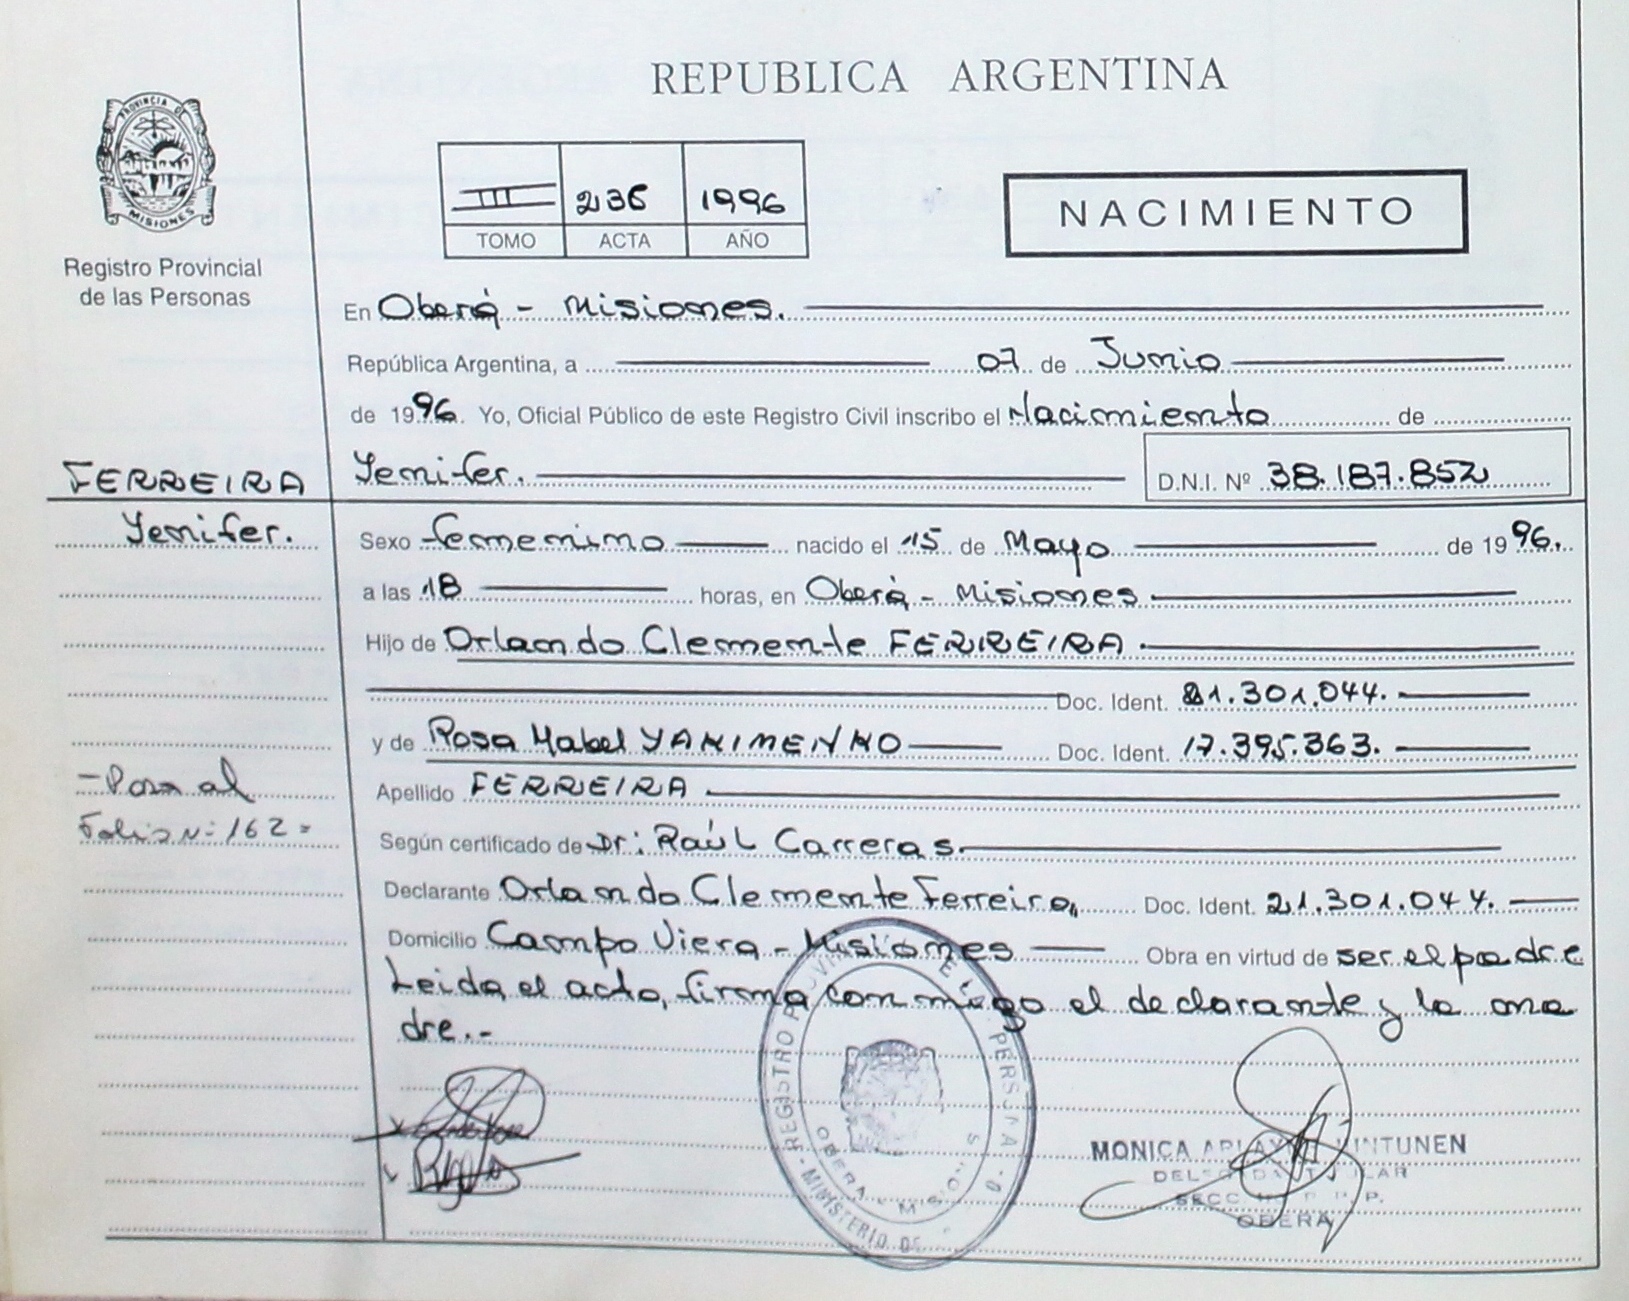 REPUBLICA ARGENTINA
PROVINCIA DE
MISIONES
Registro Provincial
de las Personas
III 236 1996
TOMO ACTA AÑO
NACIMIENTO
En Oberá - Misiones.
República Argentina, a 07 de Junio
de 1996. Yo, Oficial Público de este Registro Civil inscribo el Nacimiento de
FERREIRA Yenifer. D.N.I. Nº 38.187.852
Yenifer. Sexo femenino nacido el 15 de Mayo de 1996.
a las 18 horas, en Oberá - Misiones
Hijo de Orlando Clemente FERREIRA
Doc. Ident. 21.301.044.
y de Rosa Mabel YAKIMENKO Doc. Ident. 17.395.363.
- Pasa al Apellido FERREIRA
Folio Nº 162 = Según certificado de Dr: Raúl Carreras.
Declarante Orlando Clemente Ferreira, Doc. Ident. 21.301.044.
Domicilio Campo Viera - Misiones Obra en virtud de ser el padre
Leida el acta, firma conmigo el declarante y la ma
dre.-
REGISTRO
MINISTERIO DE
OBERA
MONICA KINTUNEN
TITULAR
SECC
OBERA